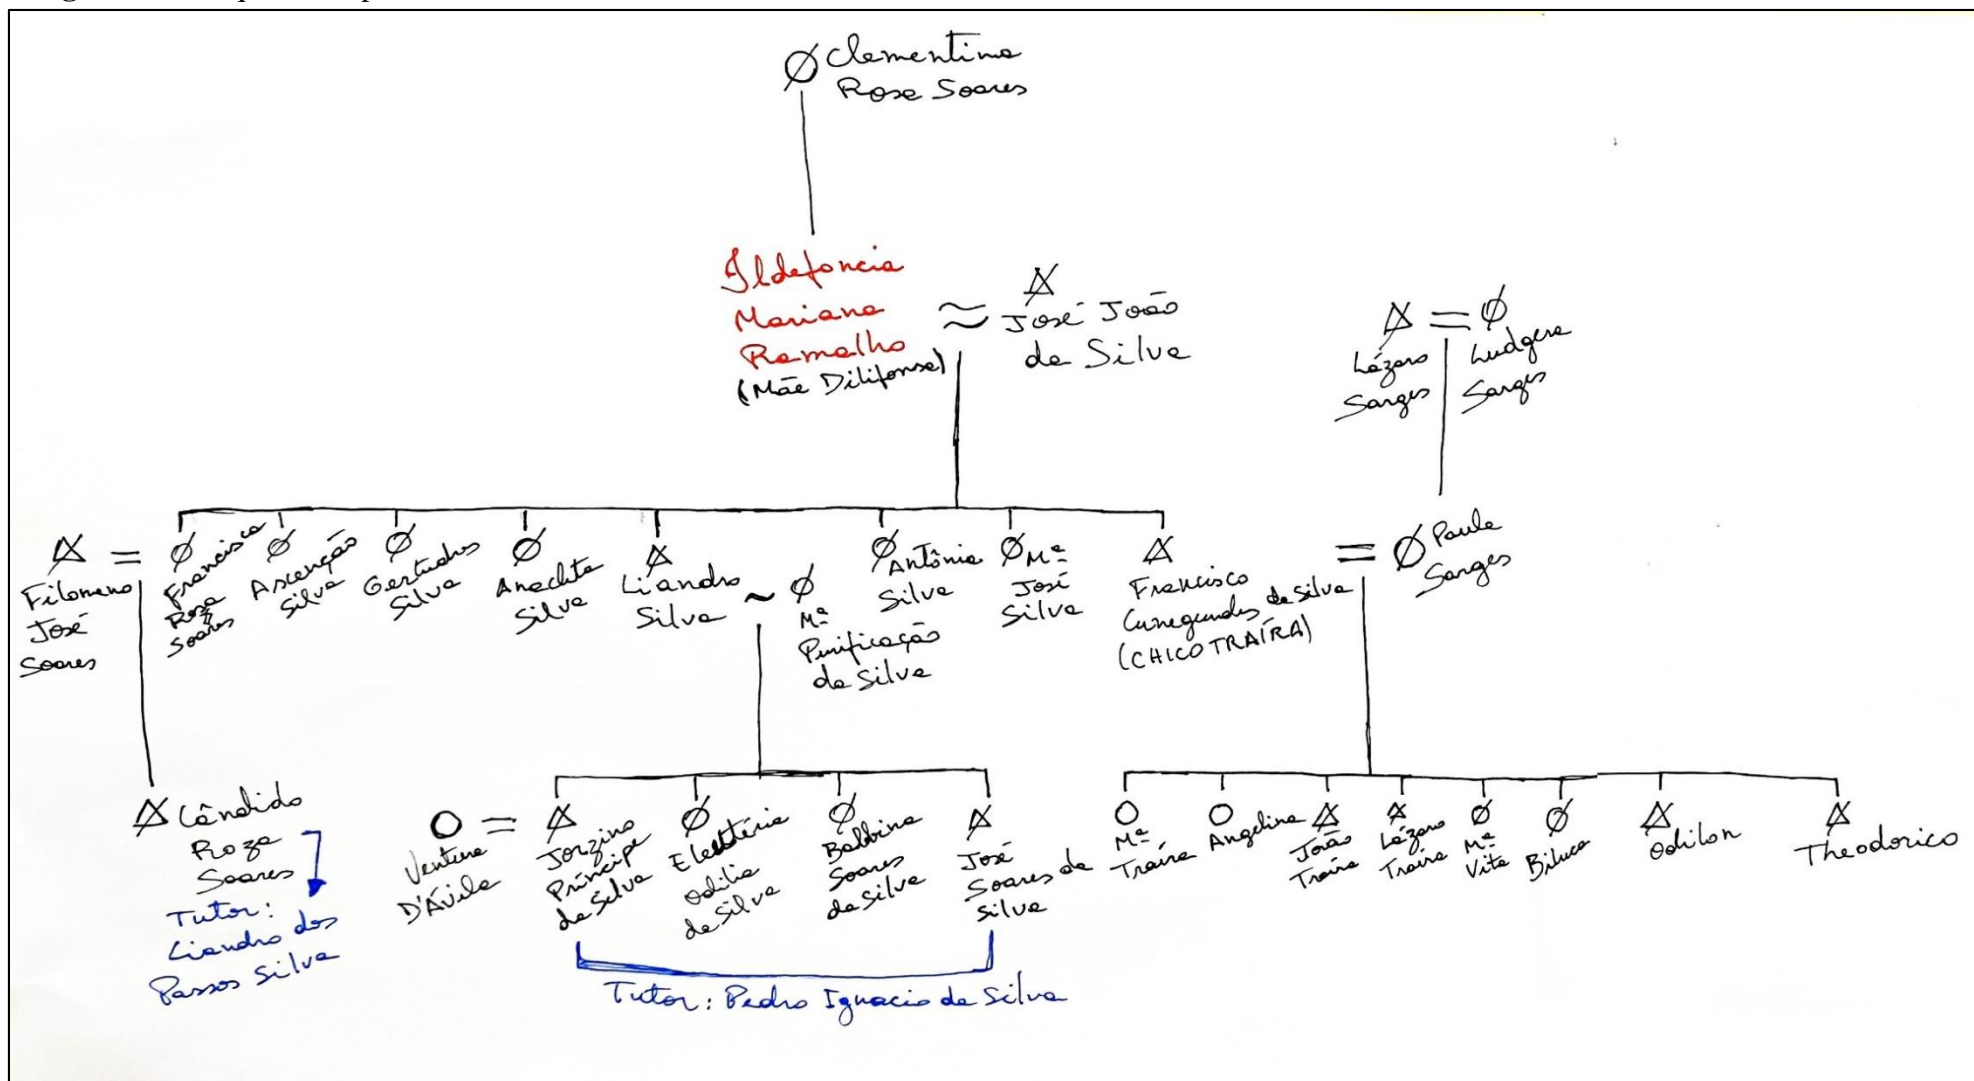 Clementina
Rosa Soares
Ildefoncia
Mariana
Ramalho
(Mãe Dilifonsa)
José João
da Silva
Lázaro
Sarges
Ludgera
Sarges
Filomeno
José
Soares
Francisca
Rosa
Soares
Ascenção
Silva
Gertudes
Silva
Anaclita
Silva
Liandro
Silva
Mª
Purificação
da Silva
Antônia
Silva
Mª
José
Silva
Francisco
Cunegundes da Silva
(CHICO TRAÍRA)
Paula
Sarges
Cândido
Roza
Soares
Tutor:
Liandro dos
Passos Silva
Ventura
D'Ávila
Jorzino
Príncipe
da Silva
Odilia
da Silva
Balbina
Soares
da Silva
José
Soares da
Silva
Tutor: Pedro Ignacio da Silva
Mª
Traíra
Angelina
João
Traíra
Lázaro
Traíra
Mª
Vita
Biluca
Odilon
Theodorico